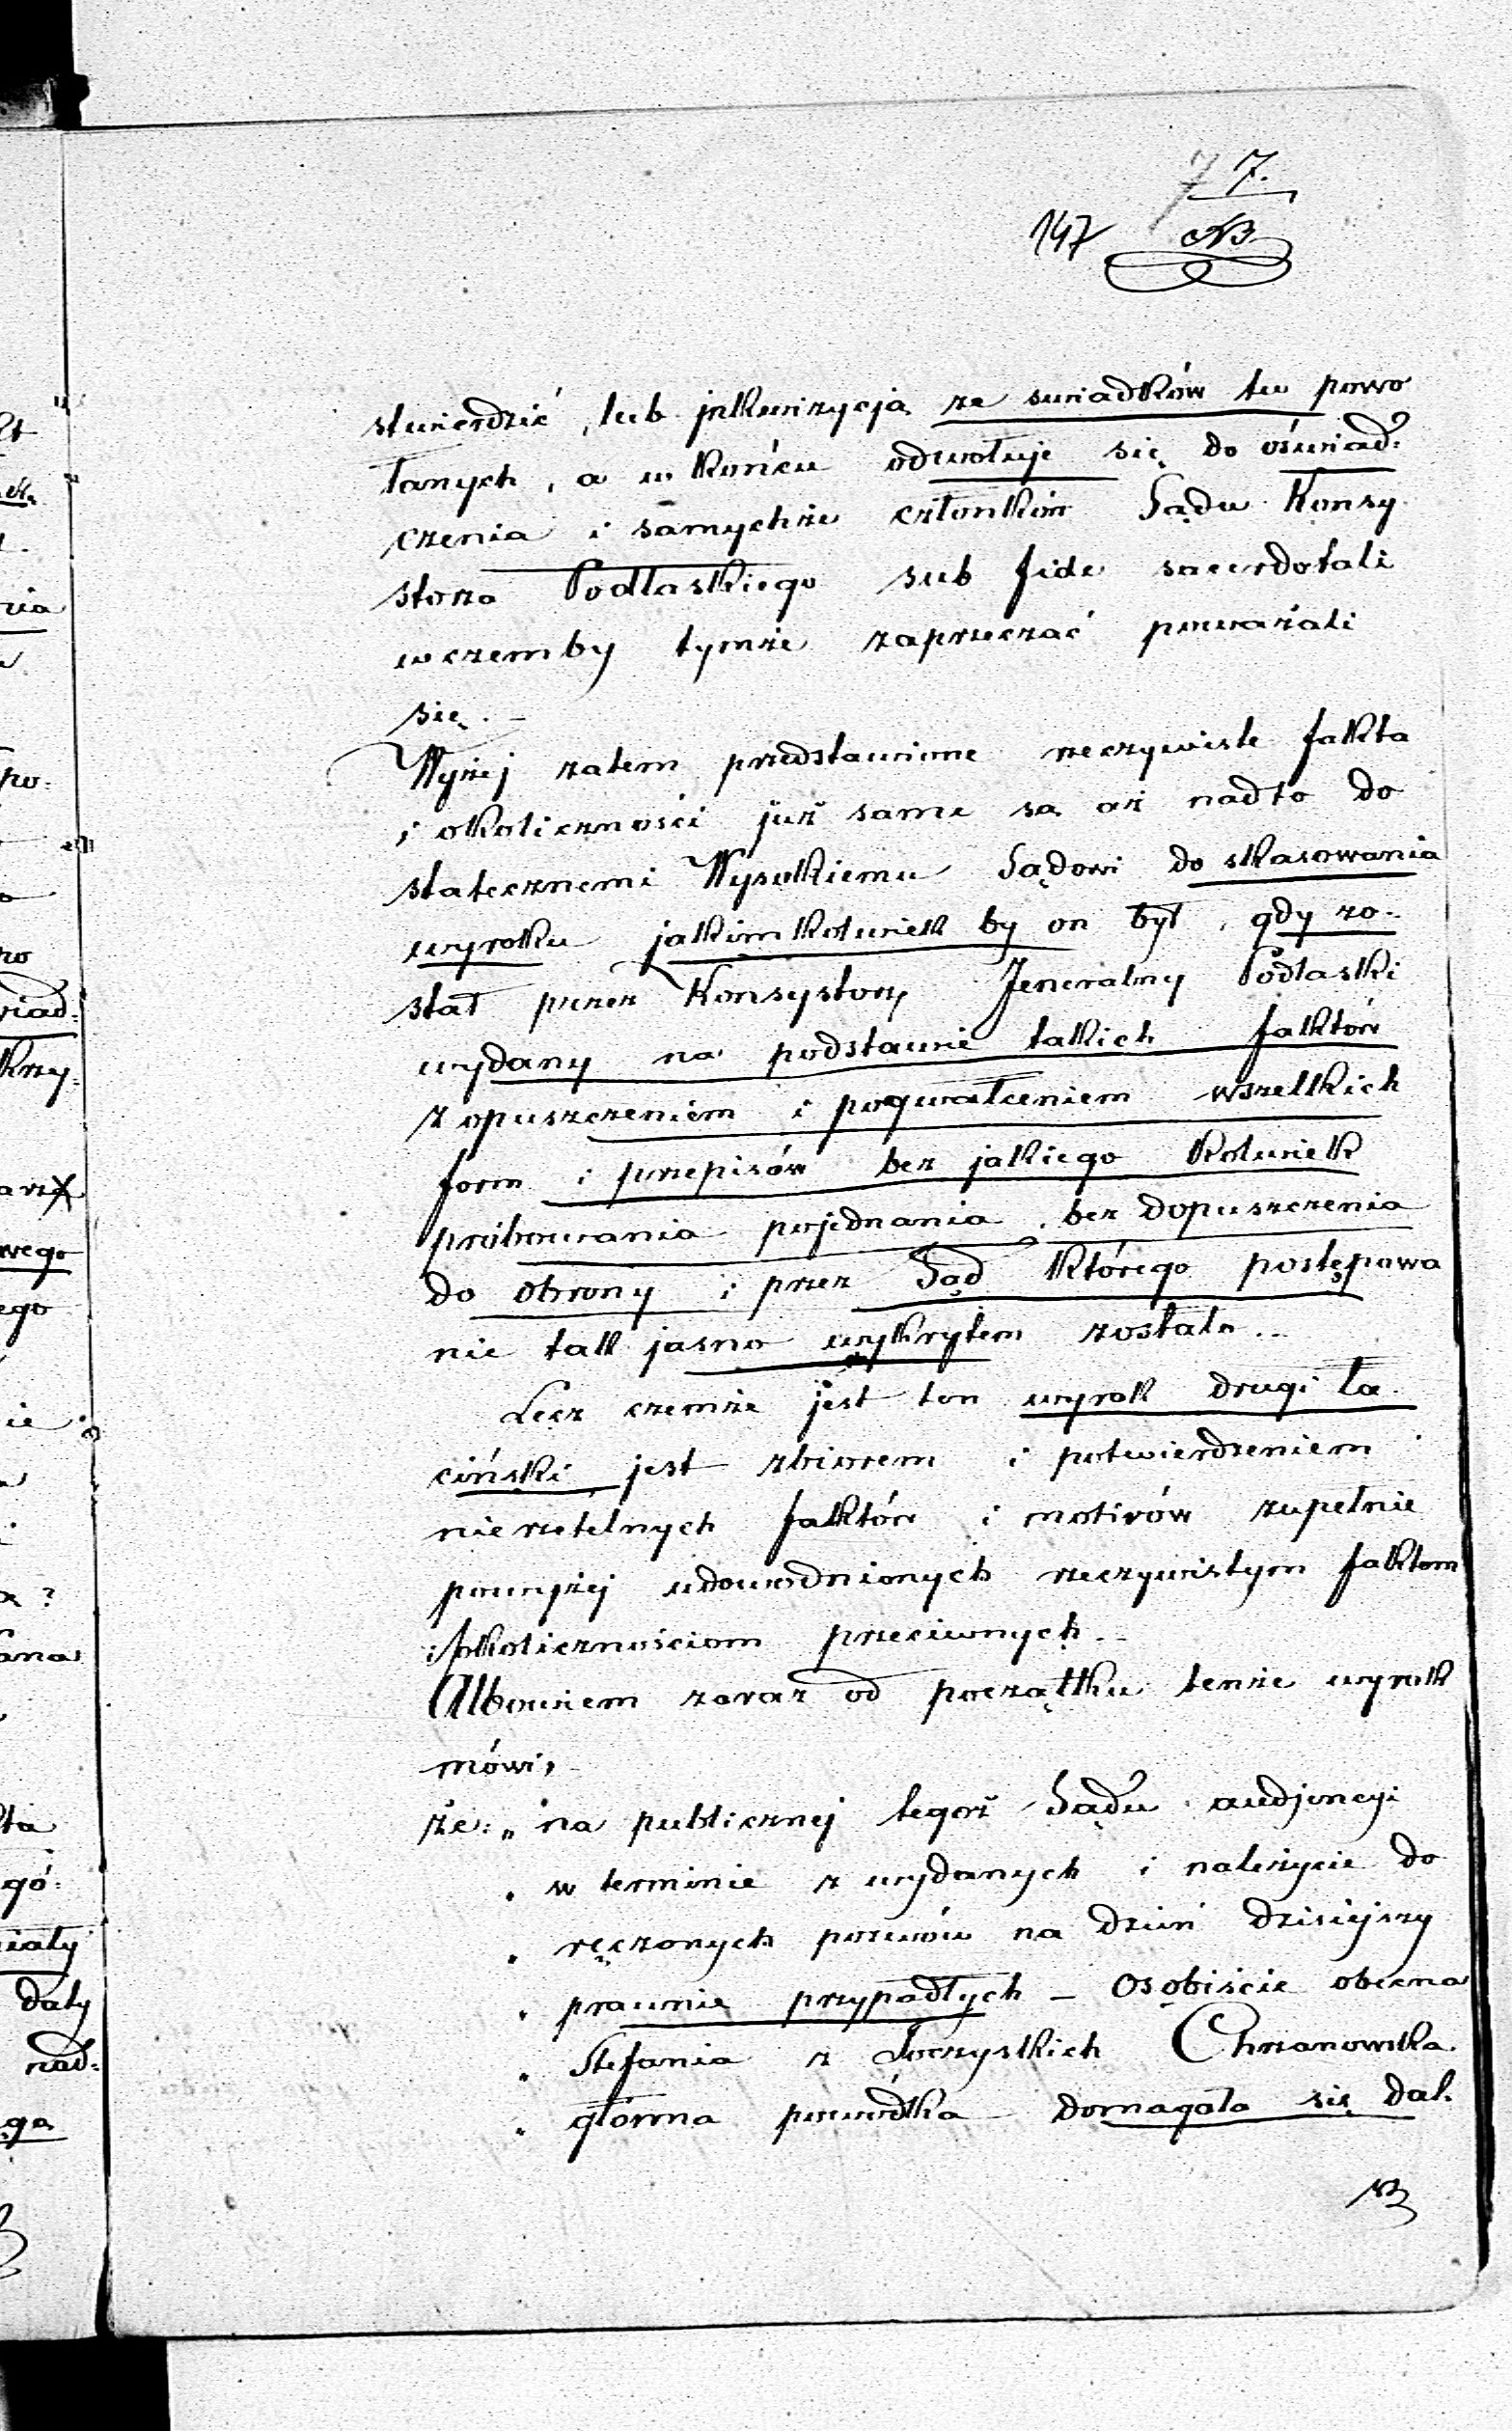 7 7.
147 NB
stwierdzić, lub inkwizycją ze swiadków tu powo
łanych, a w końcu odwołuje się do oświad:
czenia i samychże członków Sądu Konsy
storza Podlaskiego sub fide sacerdotali
w czemby tymże zaprzeczać poważali
się. –
Wyżej zatem przedstawione rzeczywiste fakta
i okoliczności już same są aż nadto do
statecznemi Wysokiemu Sądowi do skasowania
wyroku jakimkolwiek by on był, gdy zo-
stał przez Konsystorz Jeneralny Podlaski
wydany na podstawie takich faktów
z opuszczeniem i pogwałceniem wszelkich
form i przepisów bez jakiego kolwiek
próbowania pojednania, bez dopuszczenia
do obrony i przez Sąd którego postępowa
nie tak jasno wykrytem zostało..
Lecz czemże jest ten wyrok drugi ła
ciński jest zbiorem i potwierdzeniem
nierzetelnych faktów i motivów zupełnie
powyżej udowodnionych rzeczywistym faktom
i okolicznościom przeciwnych..
Albowiem zaraz od początku tenże wyrok
mówi,
że: „ na publicznej tegoż Sądu audjencyi
„ w terminie z wydanych i należycie do
„ ręczonych pozwów na dzień dzisiejszy
„ prawnie przypadłych – osobiście obecna
„ Stefania z Chrzanowska
„ głowna powódka domagała się dal.
NB